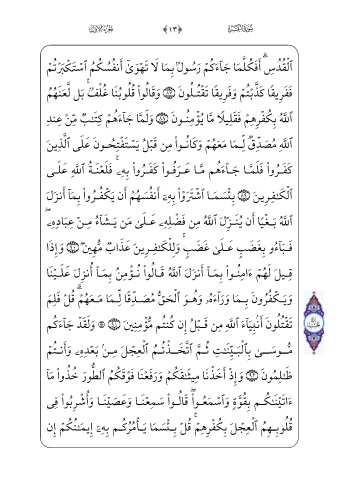 سُورَةُ البَقَرَةِ ﴿١٣﴾ الجُزءُ الأَوَّلُ
ٱلْقُدُسِۗ أَفَكُلَّمَا جَآءَكُمْ رَسُولٌۢ بِمَا لَا تَهْوَىٰٓ أَنفُسُكُمُ ٱسْتَكْبَرْتُمْ
فَفَرِيقًا كَذَّبْتُمْ وَفَرِيقًا تَقْتُلُونَ ٨٧ وَقَالُوا۟ قُلُوبُنَا غُلْفٌۢۚ بَل لَّعَنَهُمُ
ٱللَّهُ بِكُفْرِهِمْ فَقَلِيلًا مَّا يُؤْمِنُونَ ٨٨ وَلَمَّا جَآءَهُمْ كِتَٰبٌ مِّنْ عِندِ
ٱللَّهِ مُصَدِّقٌ لِّمَا مَعَهُمْ وَكَانُوا۟ مِن قَبْلُ يَسْتَفْتِحُونَ عَلَى ٱلَّذِينَ
كَفَرُوا۟ فَلَمَّا جَآءَهُم مَّا عَرَفُوا۟ كَفَرُوا۟ بِهِۦۚ فَلَعْنَةُ ٱللَّهِ عَلَى
ٱلْكَٰفِرِينَ ٨٩ بِئْسَمَا ٱشْتَرَوْا۟ بِهِۦٓ أَنفُسَهُمْ أَن يَكْفُرُوا۟ بِمَآ أَنزَلَ
ٱللَّهُ بَغْيًا أَن يُنَزِّلَ ٱللَّهُ مِن فَضْلِهِۦ عَلَىٰ مَن يَشَآءُ مِنْ عِبَادِهِۦۖ
فَبَآءُو بِغَضَبٍ عَلَىٰ غَضَبٍۚ وَلِلْكَٰفِرِينَ عَذَابٌ مُّهِينٌ ٩٠ وَإِذَا
قِيلَ لَهُمْ ءَامِنُوا۟ بِمَآ أَنزَلَ ٱللَّهُ قَالُوا۟ نُؤْمِنُ بِمَآ أُنزِلَ عَلَيْنَا
وَيَكْفُرُونَ بِمَا وَرَآءَهُۥ وَهُوَ ٱلْحَقُّ مُصَدِّقًا لِّمَا مَعَهُمْۗ قُلْ فَلِمَ
تَقْتُلُونَ أَنۢبِيَآءَ ٱللَّهِ مِن قَبْلُ إِن كُنتُم مُّؤْمِنِينَ ٩١ ۞ وَلَقَدْ جَآءَكُم
مُّوسَىٰ بِٱلْبَيِّنَٰتِ ثُمَّ ٱتَّخَذْتُمُ ٱلْعِجْلَ مِنۢ بَعْدِهِۦ وَأَنتُمْ
ظَٰلِمُونَ ٩٢ وَإِذْ أَخَذْنَا مِيثَٰقَكُمْ وَرَفَعْنَا فَوْقَكُمُ ٱلطُّورَ خُذُوا۟ مَآ
ءَاتَيْنَٰكُم بِقُوَّةٍ وَٱسْمَعُوا۟ۖ قَالُوا۟ سَمِعْنَا وَعَصَيْنَا وَأُشْرِبُوا۟ فِى
قُلُوبِهِمُ ٱلْعِجْلَ بِكُفْرِهِمْۚ قُلْ بِئْسَمَا يَأْمُرُكُم بِهِۦٓ إِيمَٰنُكُمْ إِن